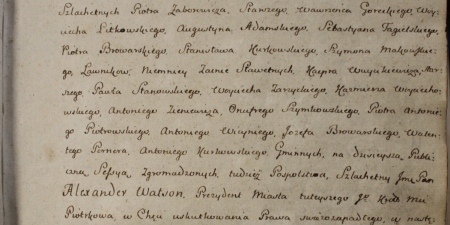 Szlachetnych Piotra Zaborowicza, Starszego, Wawrzeńca Goreckiego, Woy-
ciecha Litkowskiego, Augustyna, Adamskiego, Sebastyana Tagielskiego,
Piotra Browarskiego, Stanisława, Kurkowskiego, Szymona Makowskie-
go, Ławników, Niemniey Zacnie Sławetnych, Kacpra Wuykiewicza, Star-
szego Paula Stanowskiego, Woyciecha Zaruskiego, Kazmierza Woyciecho-
wskiego, Antoniego Zieniewicza, Onufrego Szymkowskiego, Piotra Antonie-
go Piotrowskiego, Antoniego Wiayniego, Jozefa Browarskiego, Walen-
tego Pernera, Antoniego Kurkowskiego, Gminnych, na dzisieyszą Publi-
czną Sessyą, Zgromadzonych, tudzież Pospolstwa, Szlachetny Jmć Pan
Alexander Watson, Prezydent Miasta tuteyszego JK Kród Mci
Piotrkowa, w Chęci uskutkowania Prawa świeżozapadłego, w nastę-